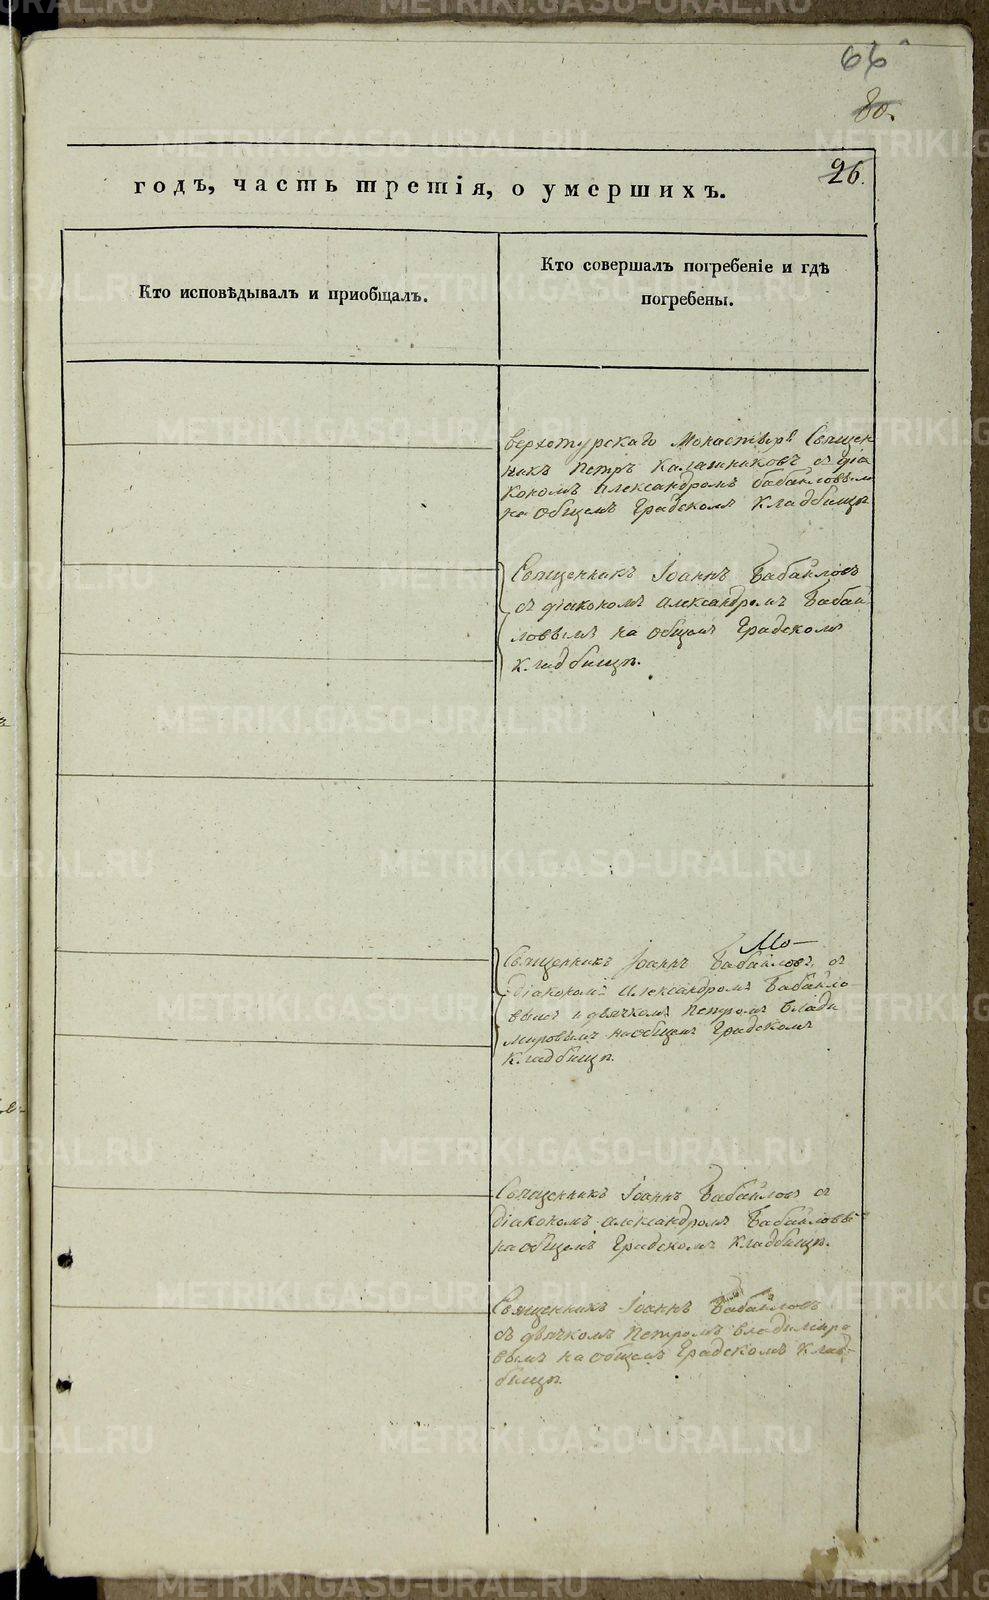 66
80.
26.
годъ, часть третія, о умершихъ.
Кто исповѣдывалъ и пріобщалъ.
Кто совершалъ погребеніе и гдѣ
погребены.
Верхотурскаго Монастыря Священ
никъ Петръ Калашниковъ съ діа
кономъ Александромъ Бабайловымъ
на общемъ Градскомъ кладбищѣ
Священникъ Іоаннъ Бабайловъ
съ діакономъ Александромъ Бабай
ловымъ на общемъ Градскомъ
кладбищѣ.
Мо—
Священникъ Іоаннъ Бабайловъ, съ
діакономъ Александромъ Бабайло
вымъ и дьячкомъ Петромъ Влади
мировымъ на общемъ Градскомъ
кладбищѣ.
Священникъ Іоаннъ Бабайловъ съ
діакономъ Александромъ Бабайловы
на общемъ Градскомъ кладбищѣ.
Священникъ Іоаннъ Бабайловъ
съ дьячкомъ Петромъ Владиміро
вымъ на общемъ Градскомъ клад-
бищѣ.
METRIKI.GASO-URAL.RU